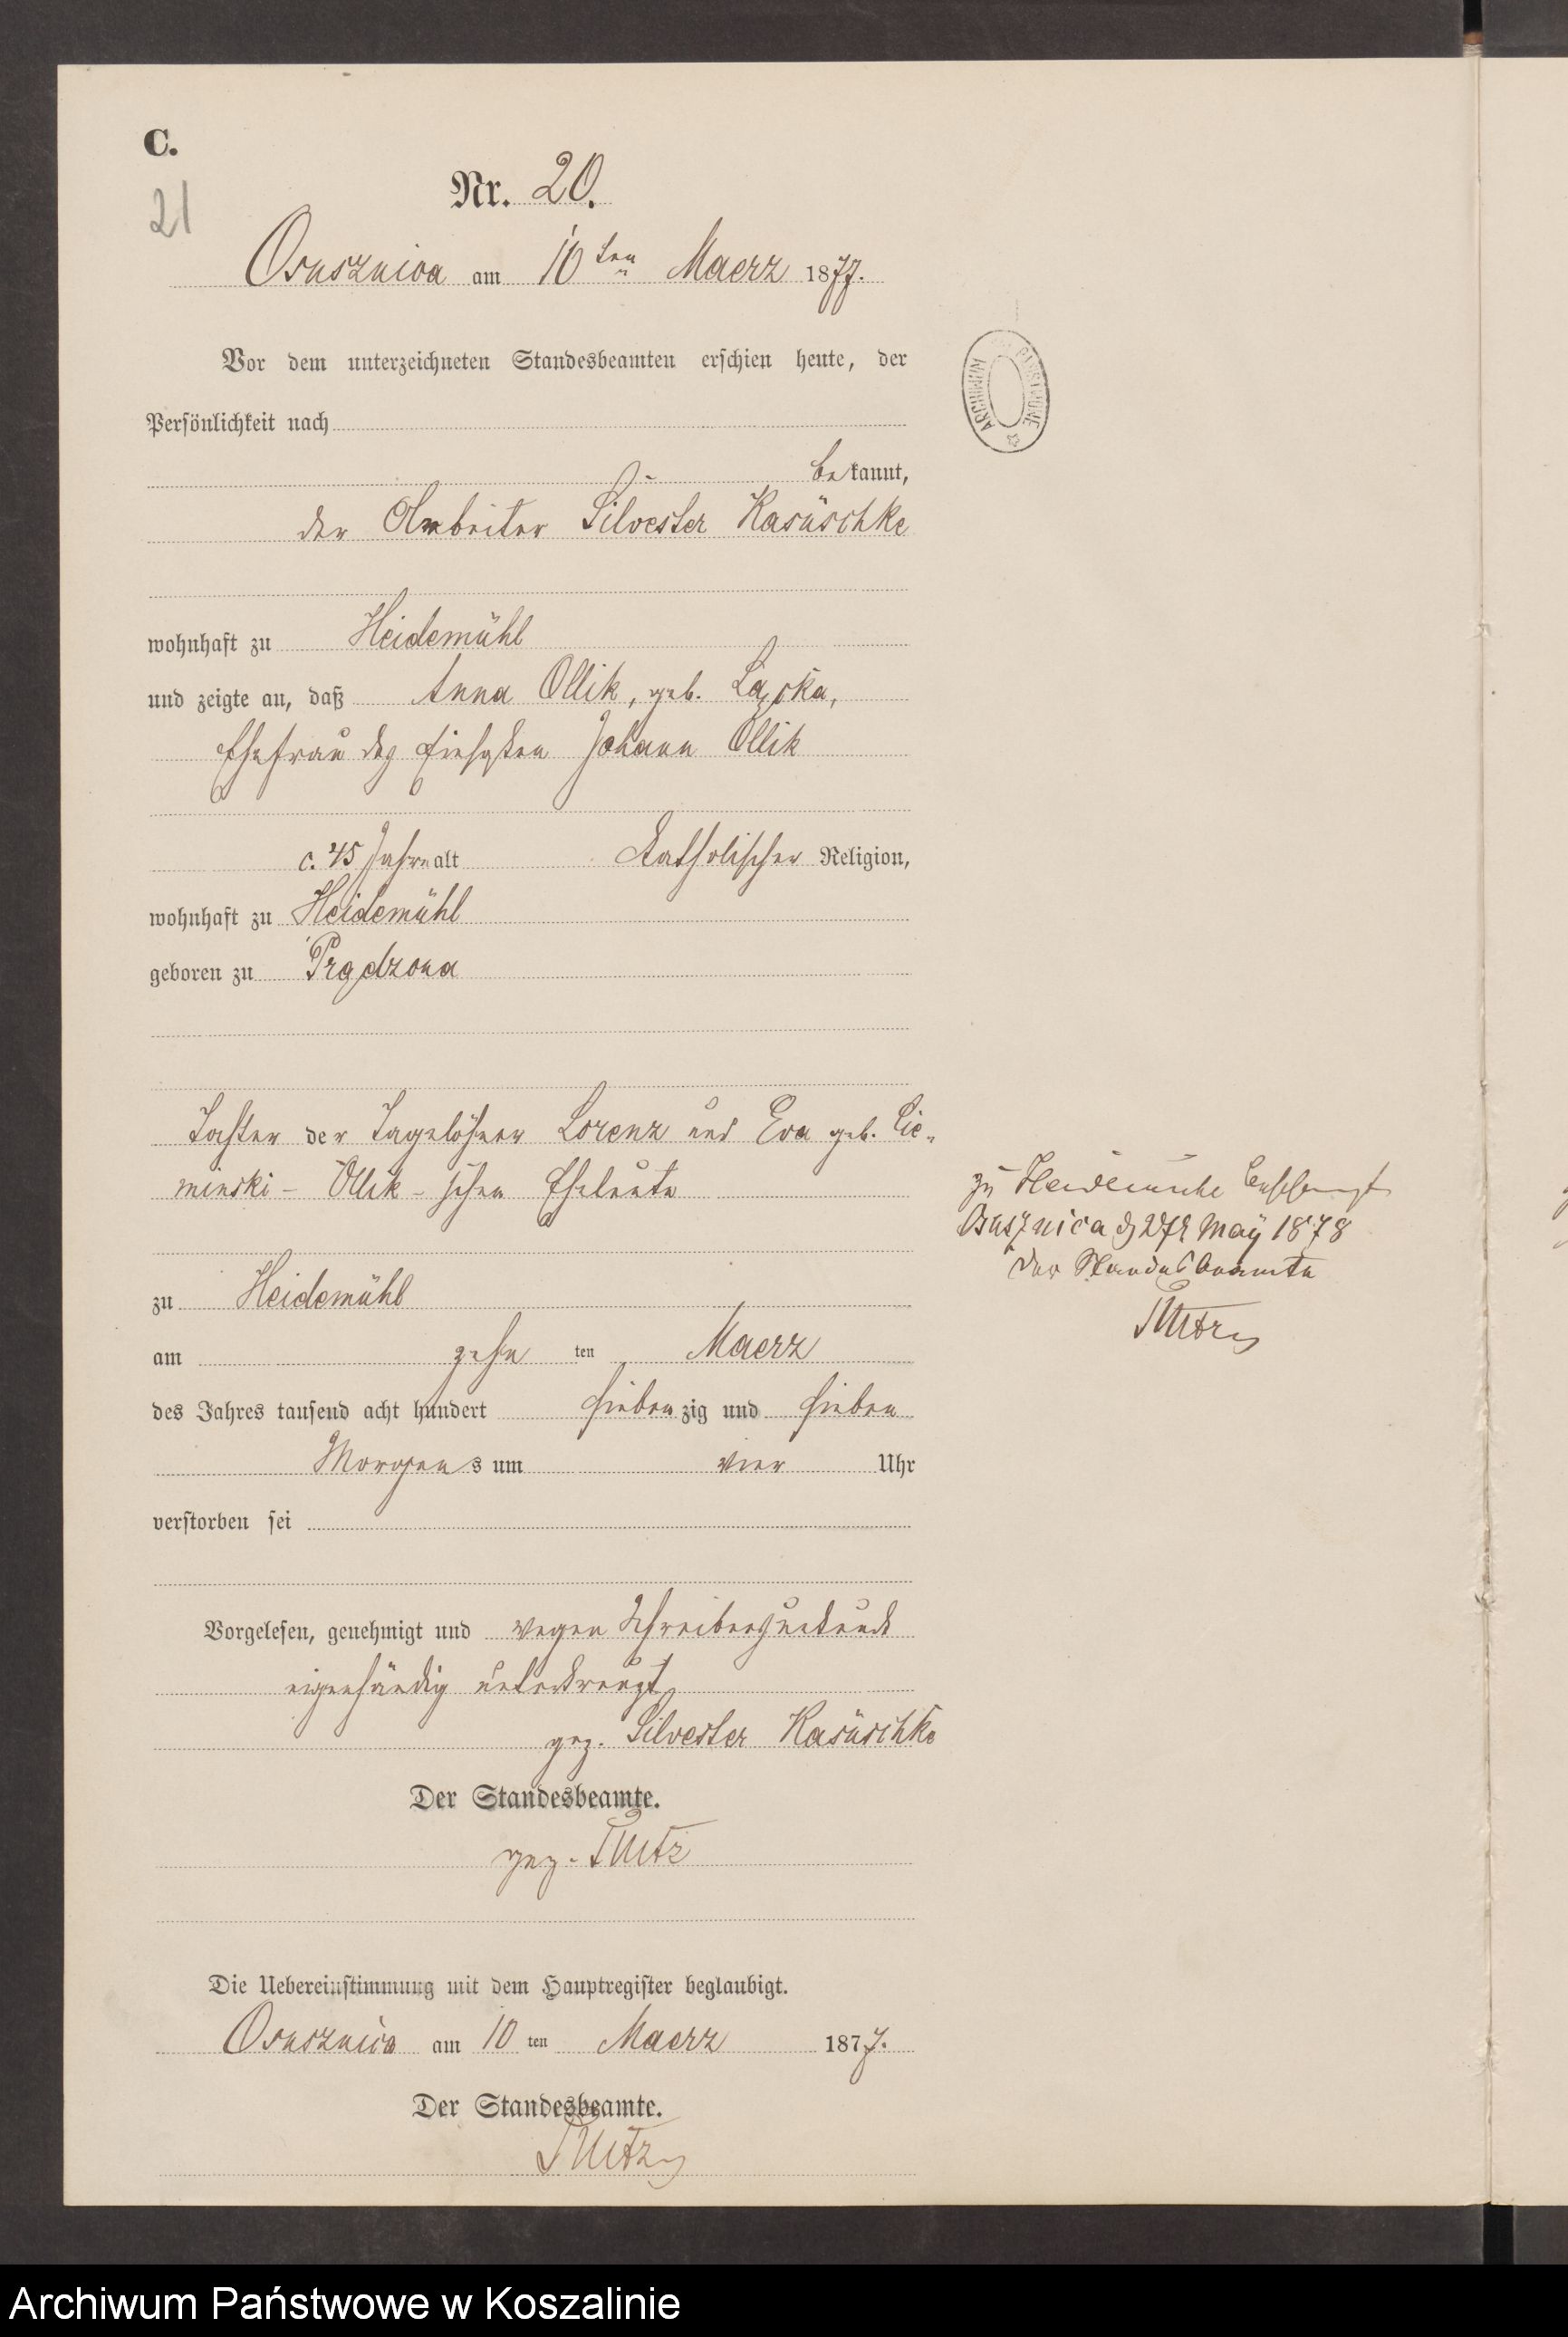 C.
21
Nr. 20.
Osusznica am 10ten Maerz 1877.
Vor dem unterzeichneten Standesbeamten erschien heute, der
Persönlichkeit nach
bekannt,
der Arbeiter Silvester Kasüschke
wohnhaft zu Heidemühl
und zeigte an, daß Anna Ollik, geb.
Ehefrau des Johann Ollik
c. 45 Jahre alt Katholischer Religion,
wohnhaft zu Heidemühl
geboren zu Prądzona
Tochter der Tagelöhner Lorenz und Eva geb. Cie-
minski - Ollik - schen Eheleute
zu Heidemühl
am zehn ten Maerz
des Jahres tausend acht hundert sieben zig und sieben
Morgens um vier Uhr
verstorben sei
Vorgelesen, genehmigt und wegen Schreibensunkunde
eigenhändig unterkreuzt
gez. Silvester Kasüschke
Der Standesbeamte.
gez.
Die Uebereinstimmung mit dem Hauptregister beglaubigt.
Osusznica am 10 ten Maerz 1877.
Der Standesbeamte.
ARCHIWUM PAŃSTWOWE
zu Heidemühle
Osusznica d 27t May 1878
Der Standesbeamte
Archiwum Państwowe w Koszalinie